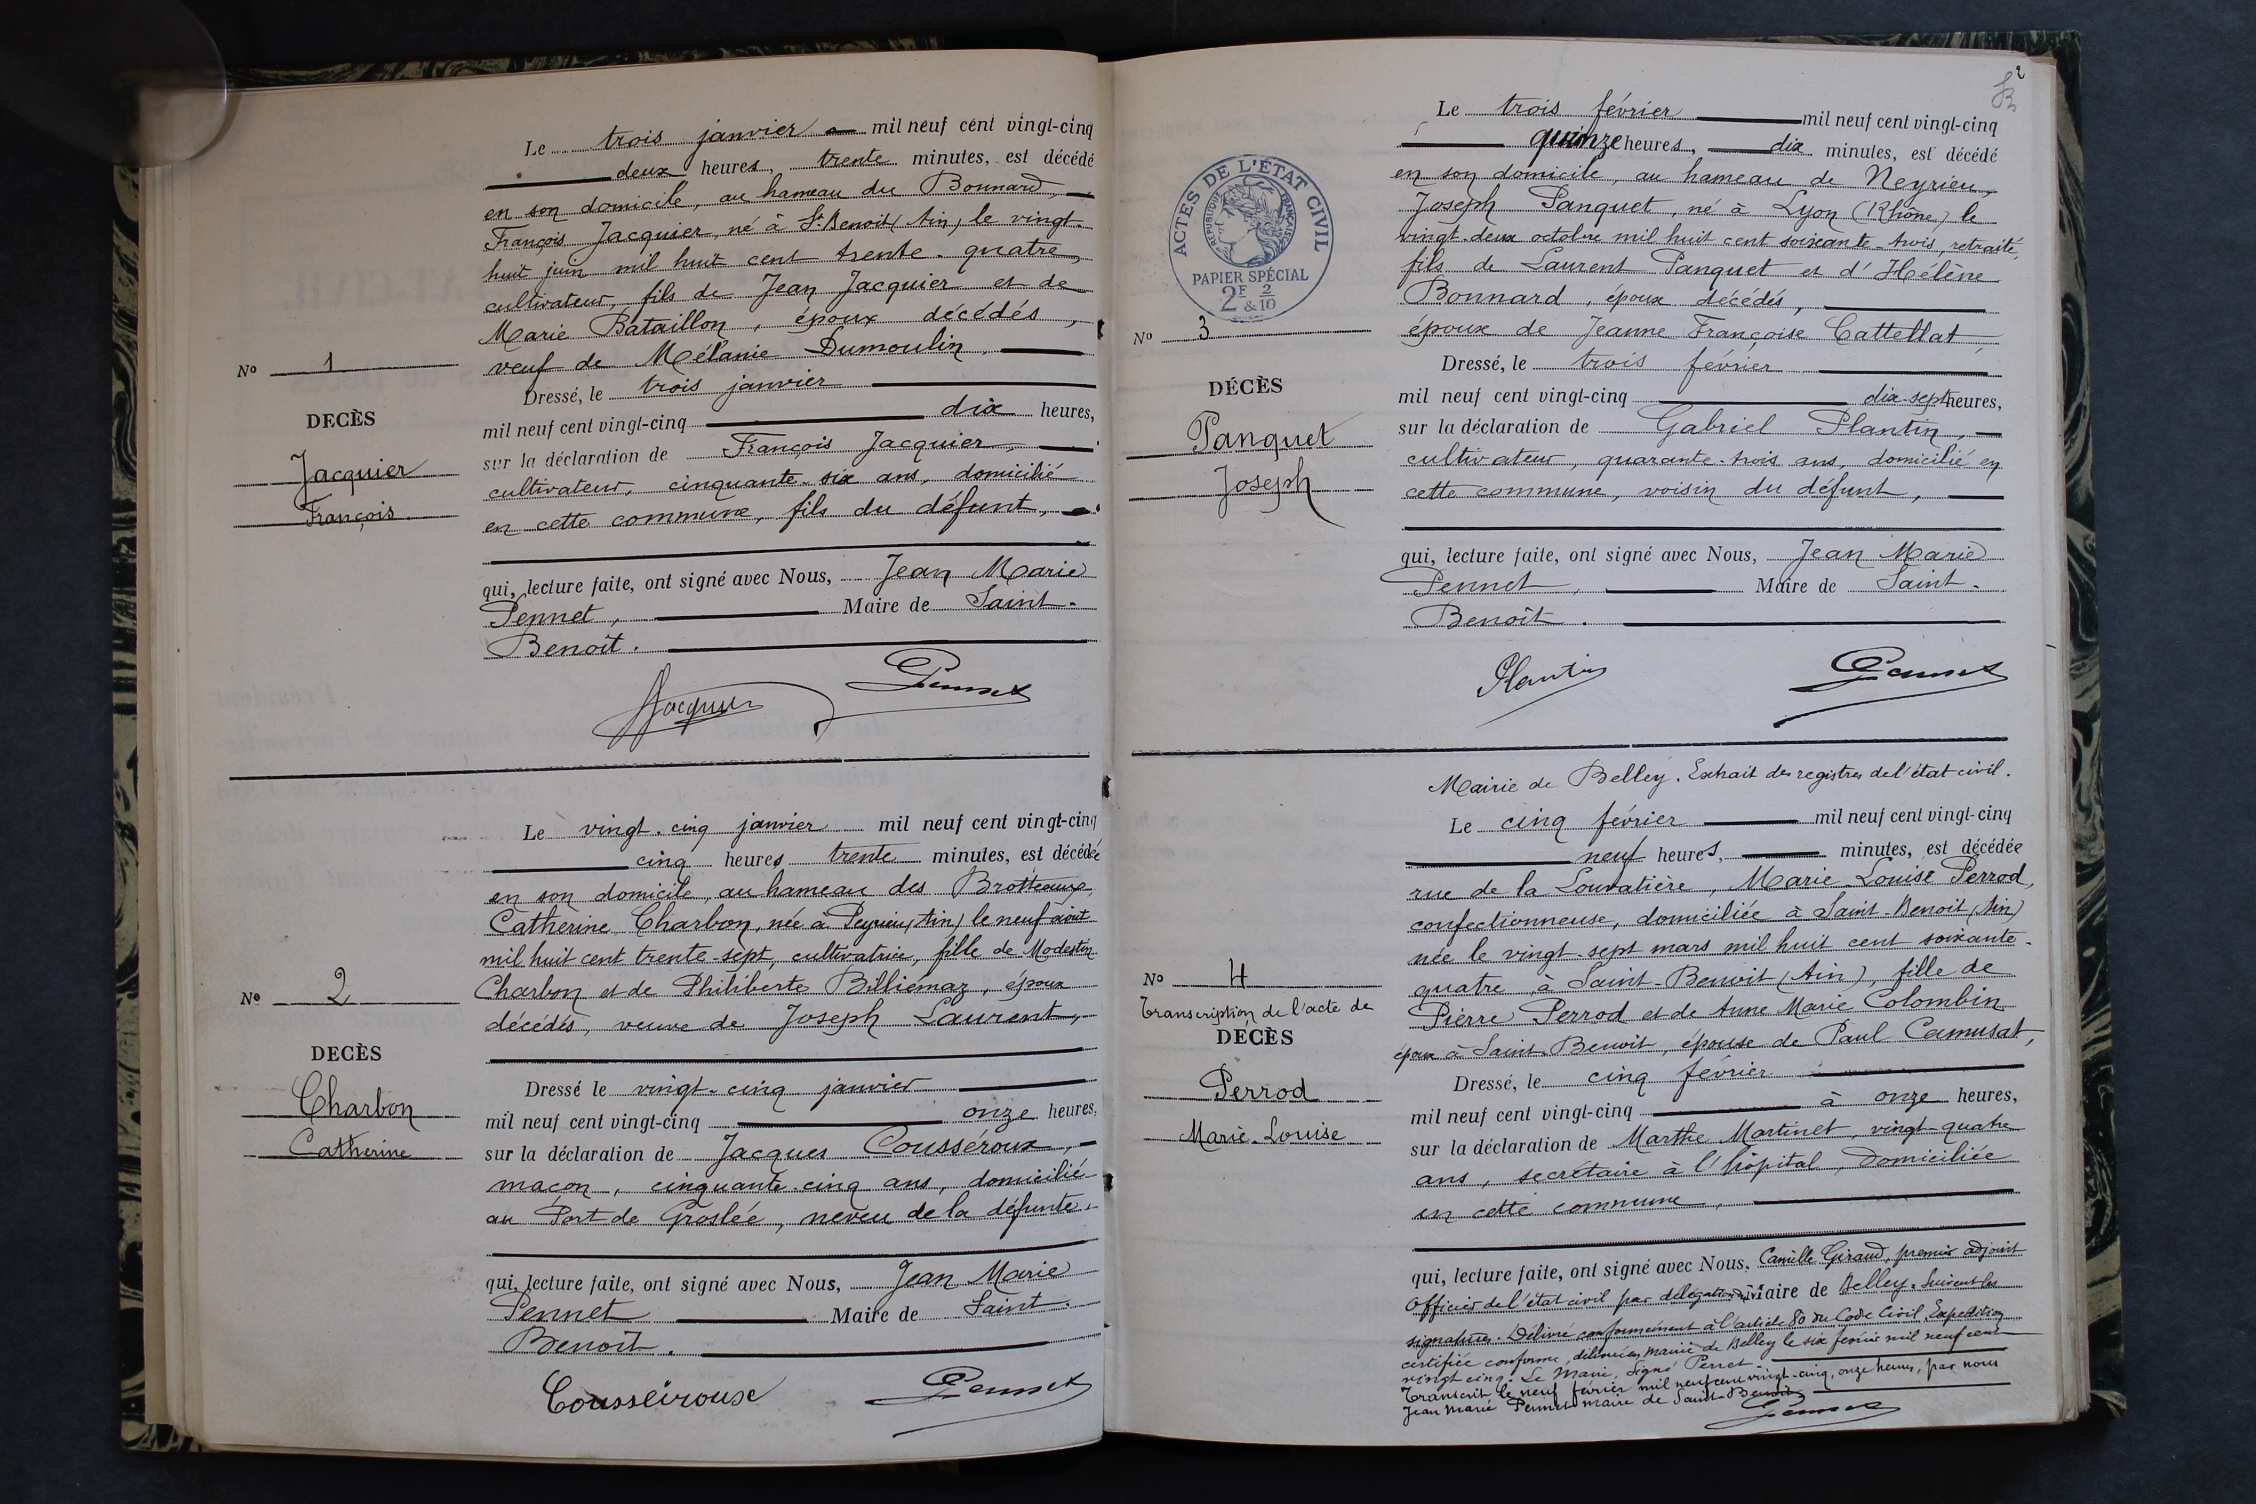 Le trois janvier mil neuf cent vingt-cinq
deux heures, trente minutes, est décédé
en son domicile, au hameau du Bonnard,
François Jacquier, né à St Benoit (Ain) le vingt-
huit juin mil huit cent trente-quatre,
cultivateur, fils de Jean Jacquier et de
Marie Bataillon, époux décédés,
veuf de Mélanie Dumoulin.
No 1
Dressé, le trois janvier
DECÈS
mil neuf cent vingt-cinq dix heures,
Jacquier
sur la déclaration de François Jacquier,
François
cultivateur, cinquante-six ans, domicilié
en cette commune, fils du défunt,
qui, lecture faite, ont signé avec Nous, Jean Marie
Pennet, Maire de Saint-
Benoît.
Jacquier Pennet
Le vingt-cinq janvier mil neuf cent vingt-cinq
cinq heures trente minutes, est décédée
en son domicile, au hameau des Brotteaux,
Catherine Charbon, née à Peyrieu (Ain) le neuf août
mil huit cent trente-sept, cultivatrice, fille de Modestin
Charbon et de Philiberte Billiemaz, époux
décédés, veuve de Joseph Laurent,
No 2
DECÈS
Charbon
Catherine
Dressé le vingt-cinq janvier
mil neuf cent vingt-cinq onze heures,
sur la déclaration de Jacques Cousséroux,
maçon, cinquante-cinq ans, domicilié
au Port de Groslée, neveu de la défunte,
qui, lecture faite, ont signé avec Nous, Jean Marie
Pennet Maire de Saint-
Benoît.
Cousséiroux Pennet
2
Le trois février mil neuf cent vingt-cinq
quinze heures, dix minutes, est décédé
en son domicile, au hameau de Neyrieu,
Joseph Panquet, né à Lyon (Rhône) le
vingt-deux octobre mil huit cent soixante-trois, retraité,
fils de Laurent Panquet et d'Hélène
Bonnard, époux décédés,
époux de Jeanne Françoise Cattellat,
ACTES DE L'ÉTAT CIVIL
REPUBLIQUE FRANÇAISE
PAPIER SPÉCIAL
2F & 2/10
No 3
DÉCÈS
Panquet
Joseph
Dressé, le trois février
mil neuf cent vingt-cinq dix-sept heures,
sur la déclaration de Gabriel Plantin,
cultivateur, quarante-trois ans, domicilié en
cette commune, voisin du défunt,
qui, lecture faite, ont signé avec Nous, Jean Marie
Pennet, Maire de Saint-
Benoît.
Plantin Pennet
Mairie de Belley. Extrait des registres de l'état civil.
Le cinq février mil neuf cent vingt-cinq
neuf heures, minutes, est décédée
rue de la Louvatière, Marie Louise Perrod,
confectionneuse, domiciliée à Saint-Benoit (Ain)
née le vingt-sept mars mil huit cent soixante-
quatre à Saint-Benoit (Ain), fille de
Pierre Perrod et de Anne Marie Colombin
époux à Saint-Benoit, épouse de Paul Camusat,
No 4
Transcription de l'acte de
DÉCÈS
Perrod
Marie-Louise
Dressé, le cinq février
mil neuf cent vingt-cinq à onze heures,
sur la déclaration de Marthe Martinet, vingt-quatre
ans, secrétaire à l'hôpital, domiciliée
en cette commune,
qui, lecture faite, ont signé avec Nous, Camille Giraud, premier adjoint
Officier de l'état civil par délégation du Maire de Belley. Suivent les
signatures. Délivré conformément à l'article 80 du Code Civil. Expédition
certifiée conforme, délivrée en mairie de Belley le six février mil neuf cent
vingt cinq. Le Maire, Signé Perret
Transcrit le neuf février mil neuf cent vingt-cinq, onze heures, par nous
Jean Marie Pennet maire de Saint-Benoit
Pennet